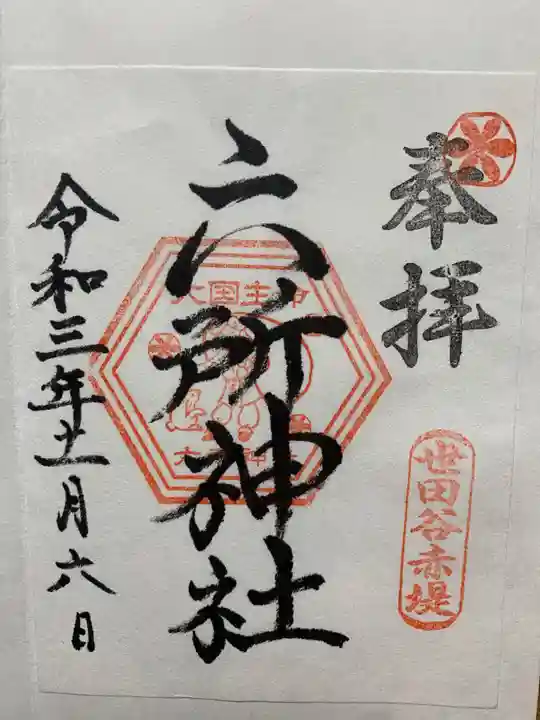 奉拝
世田谷赤堤
六所神社
大国主神
令和三年十一月六日